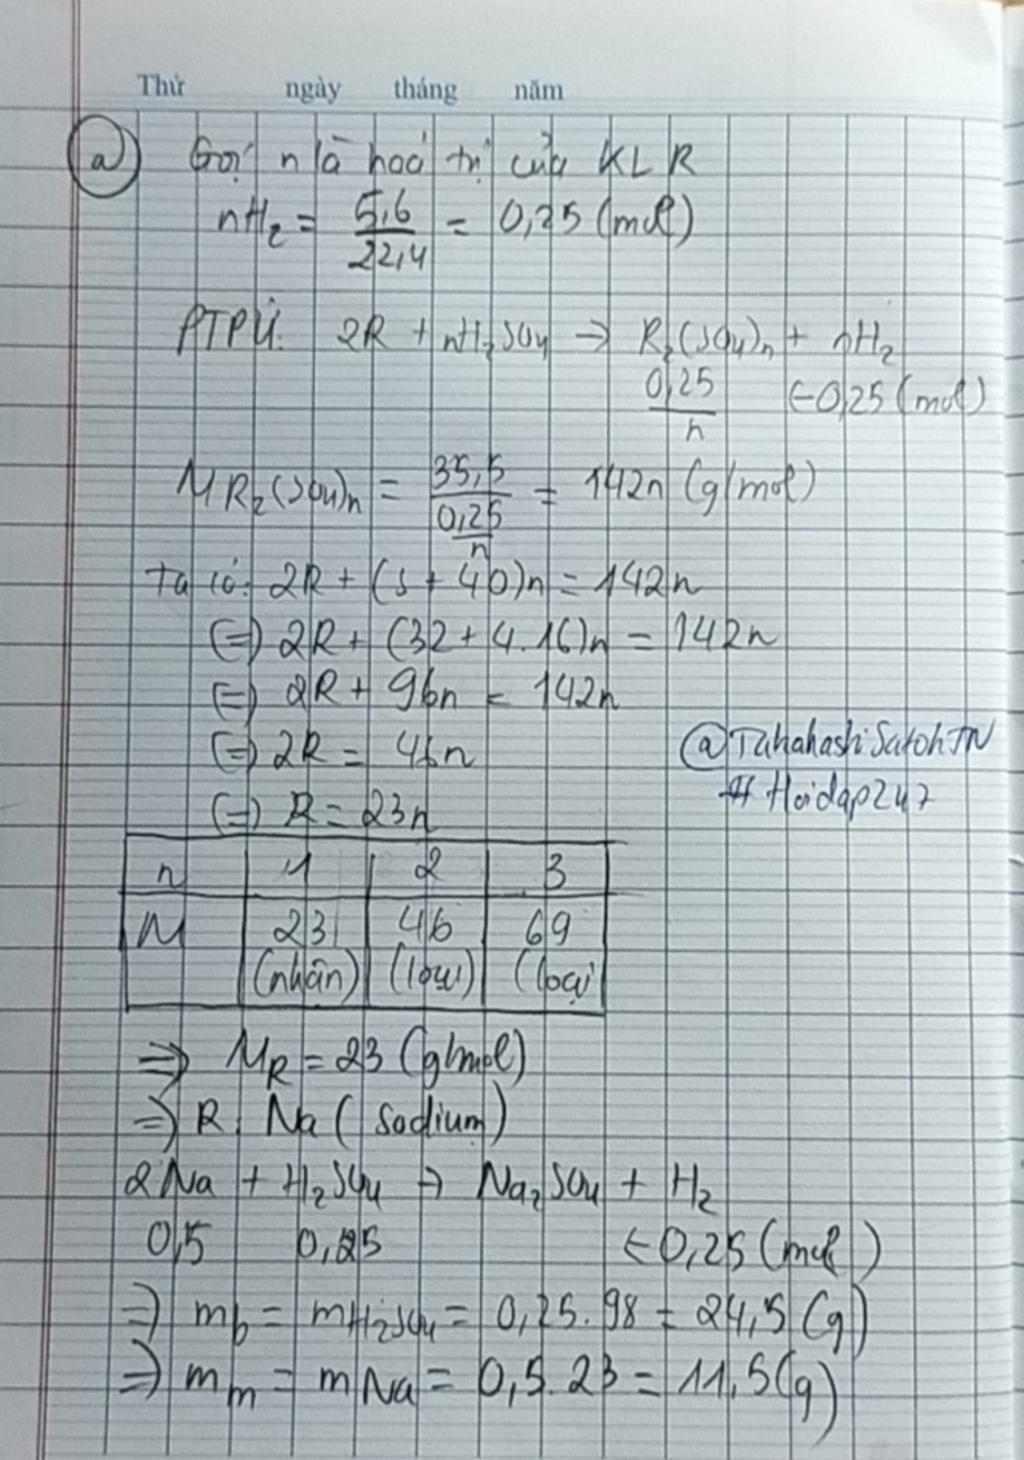 Thứ ngày tháng năm
a) Gọi n là hoá trị của KL R
nH₂ = 5,6/22,4 = 0,25 (mol)
PTPƯ: 2R + nH₂SO₄ → R₂(SO₄)n + nH₂
0,25/n ←0,25 (mol)
MR₂(SO₄)n = 35,5/(0,25/n) = 142n (g/mol)
Ta có: 2R + (S + 4O)n = 142n
(=) 2R + (32 + 4.16)n = 142n
(=) 2R + 96n = 142n
(=) 2R = 46n
(=) R = 23n
@TakahashiSatohTN
# Hoidap247
n 1 2 3
M 23 46 69
(nhận) (loại) (loại
=> MR = 23 (g/mol)
=> R: Na (Sodium)
2Na + H₂SO₄ → Na₂SO₄ + H₂
0,5 0,25 ←0,25 (mol)
=> mb = mH₂SO₄ = 0,25.98 = 24,5 (g)
=> mm = mNa = 0,5.23 = 11,5(g)